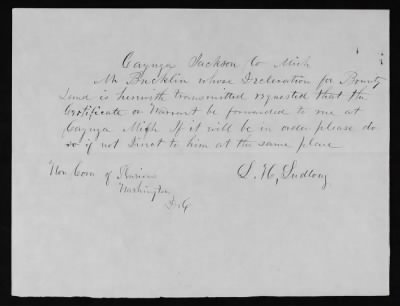 Cayuga Jackson Co Mich
Mr Bucklin whose Decleration for Bounty
Land is herewith transmitted requested that the
Certificate or Warrant be forwarded to me at
Cayuga Mich If it will be in order please do
so if not Direct to him at the same place
Hon Com of Pensions
Washington
D.C
S. H. Ludlong